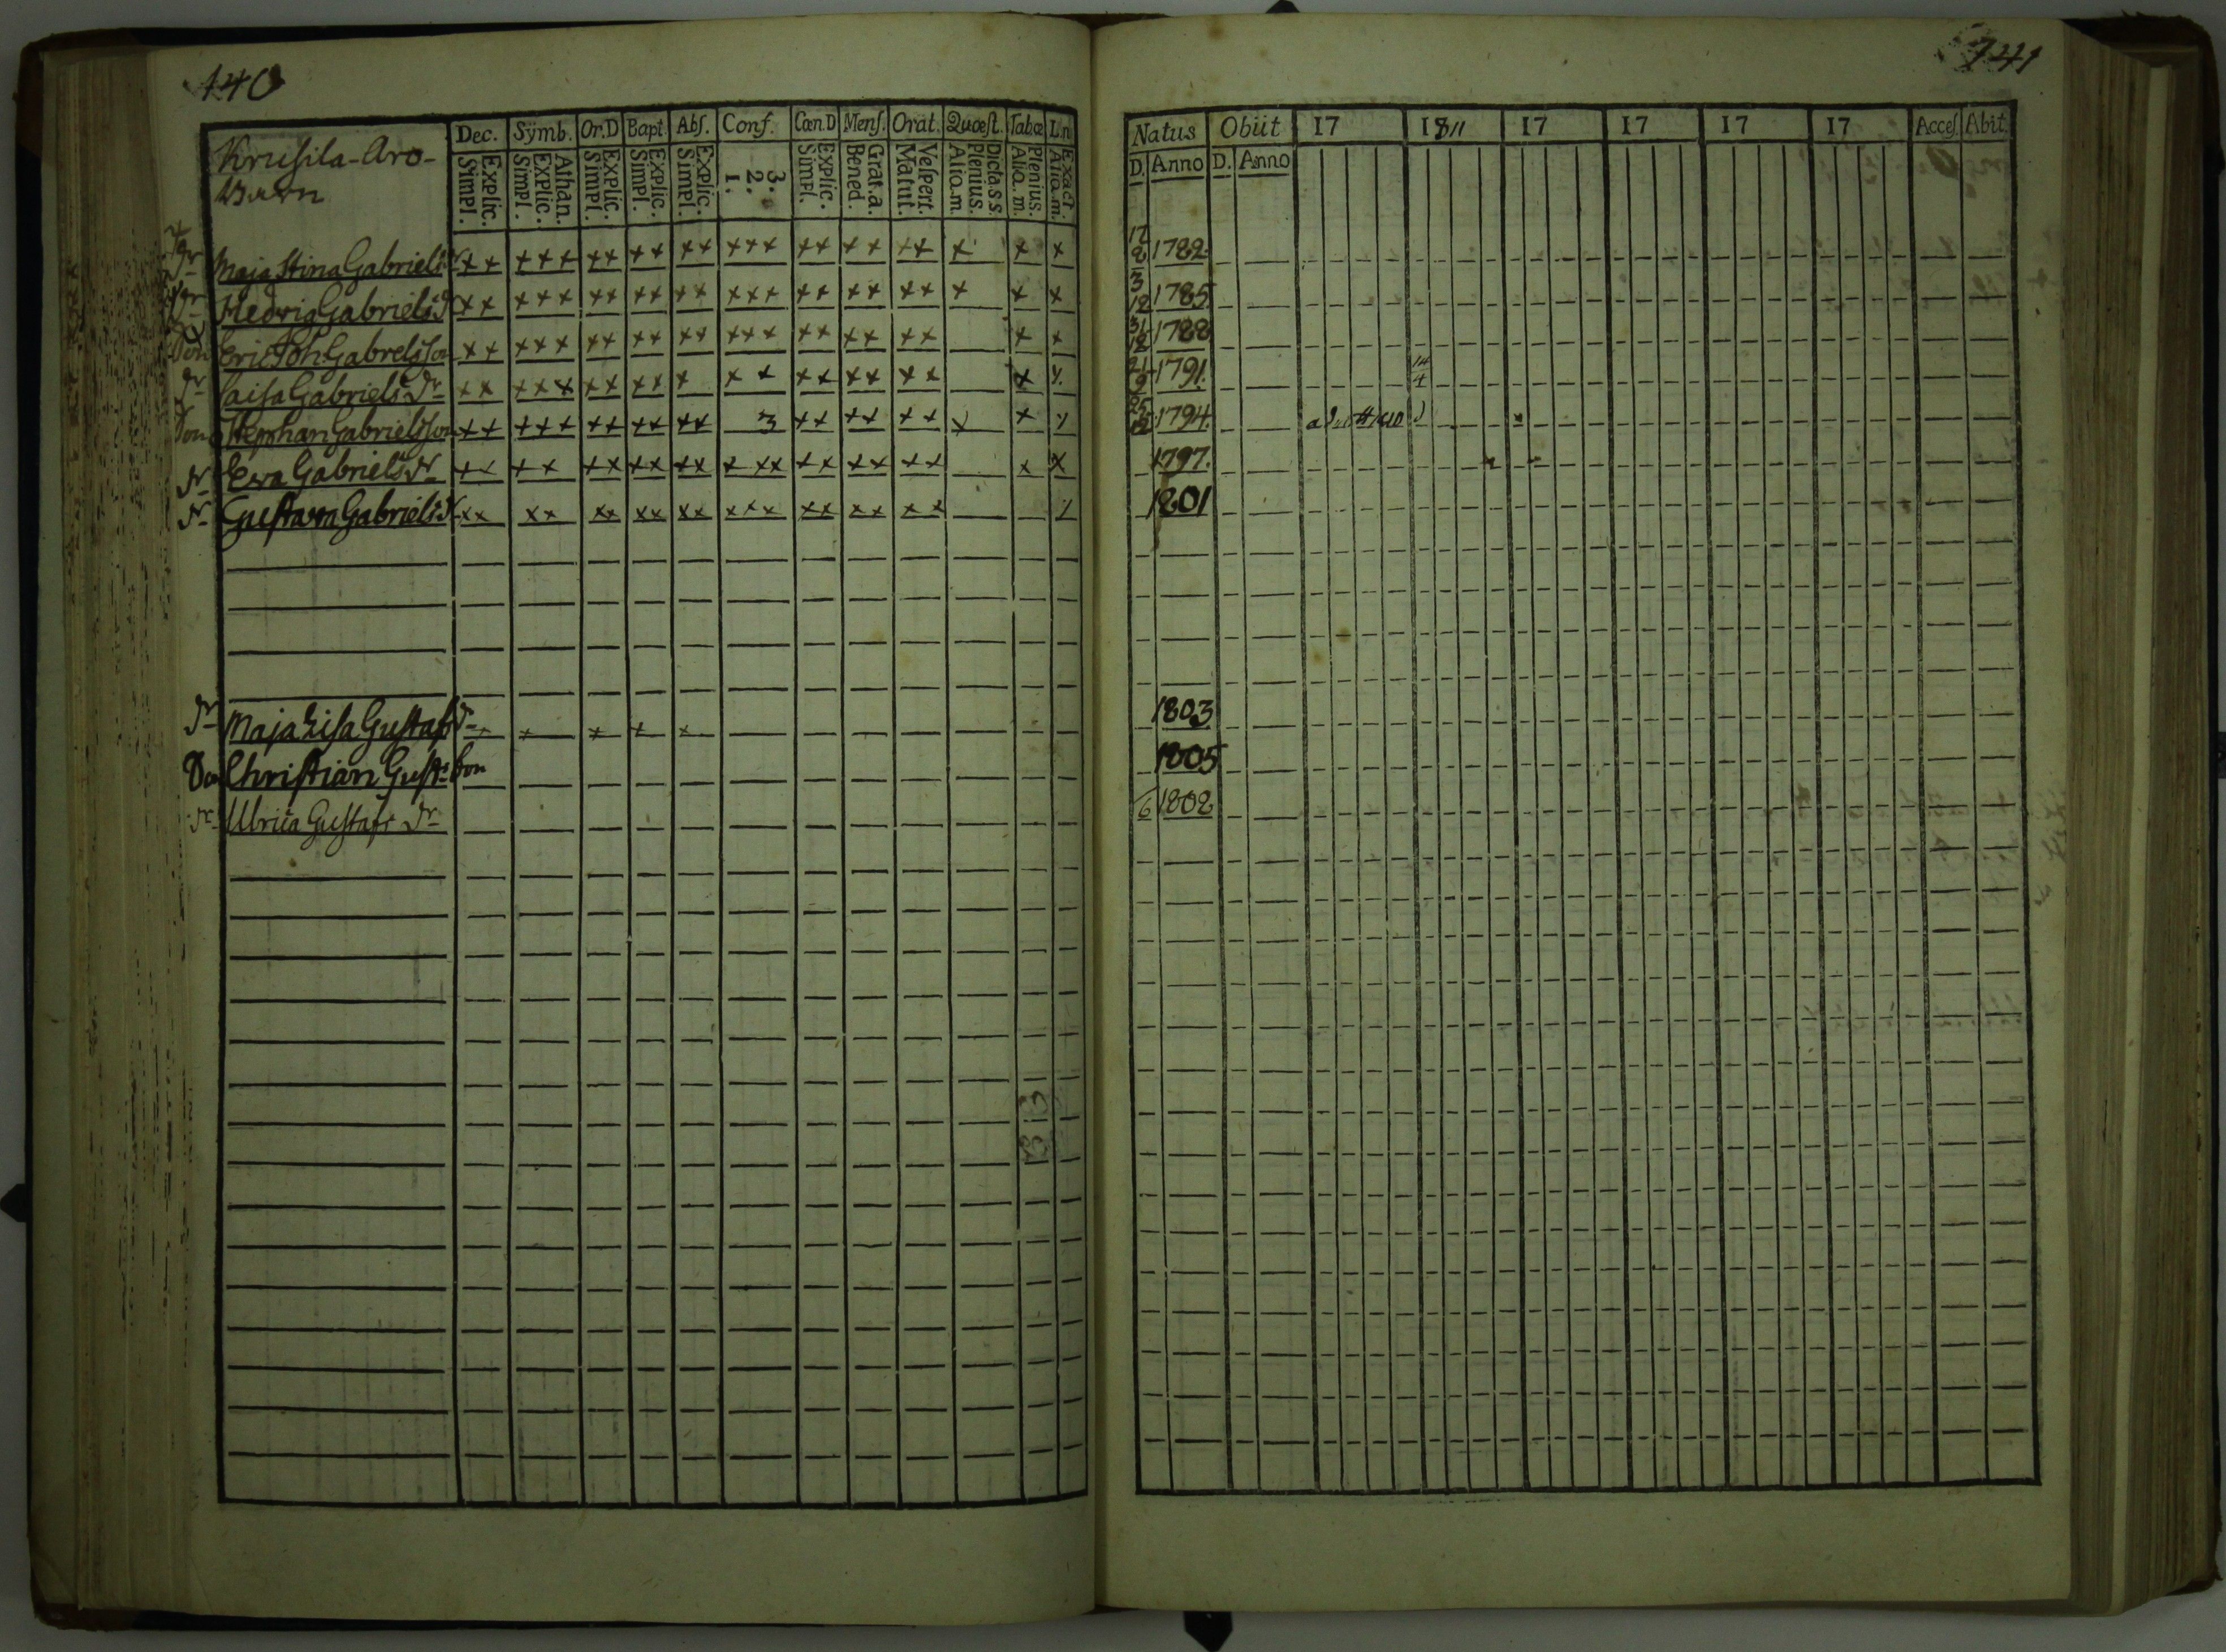 140
Krusila-Aro-
Barn
Dec. Symb. Or.D Bapt. Abs. Conf. Cœn.D Mens. Orat. Quæst. Tabœ L.n
Explic. Simpl. Athan. Explic. Simpl. Explic. Simpl. Explic. Simpl. Explic. Simpl. 3. 2. 1. Explic. Simpl. Grat.a. Bened. Vespert. Matut. Dicta.s.s. Plenius. Aliq.m Plenius. Aliq.m. Exact. Aliq.m.
Dr Maja Stina Gabriels dr x x x x x x x x x x x x x x x x x x x x x x x
Dr Hedvig Gabriels dr x x x x x x x x x x x x x x x x x x x x x x x
Son Eric Joh: Gabrielsson x x x x x x x x x x x x x x x x x x x x x x
dr Caisa Gabriels dr x x x x x x x x x x x x x x x x x x x x
Son Stephan Gabrielsson x x x x x x x x x x x 3 x x x x x x x x x
dr Ewa Gabriels dr x x x x x x x x x x x x x x x x x x x x x
dr Gustava Gabriels dr x x x x x x x x x x x x x x x x x x x x
dr Maja Lisa Gustafs dr x x x x x
Son Christian Gust. Son
dr Ulrica Gustafs dr
141
Natus Obiit 17 1811 17 17 17 17 Acces. Abit.
D. Anno D. Anno
17/8 1782
3/12 1785
31/12 1788
21/9 1791. 14/4
25/12 1794.
1797.
1801
1803
1805
6 1808